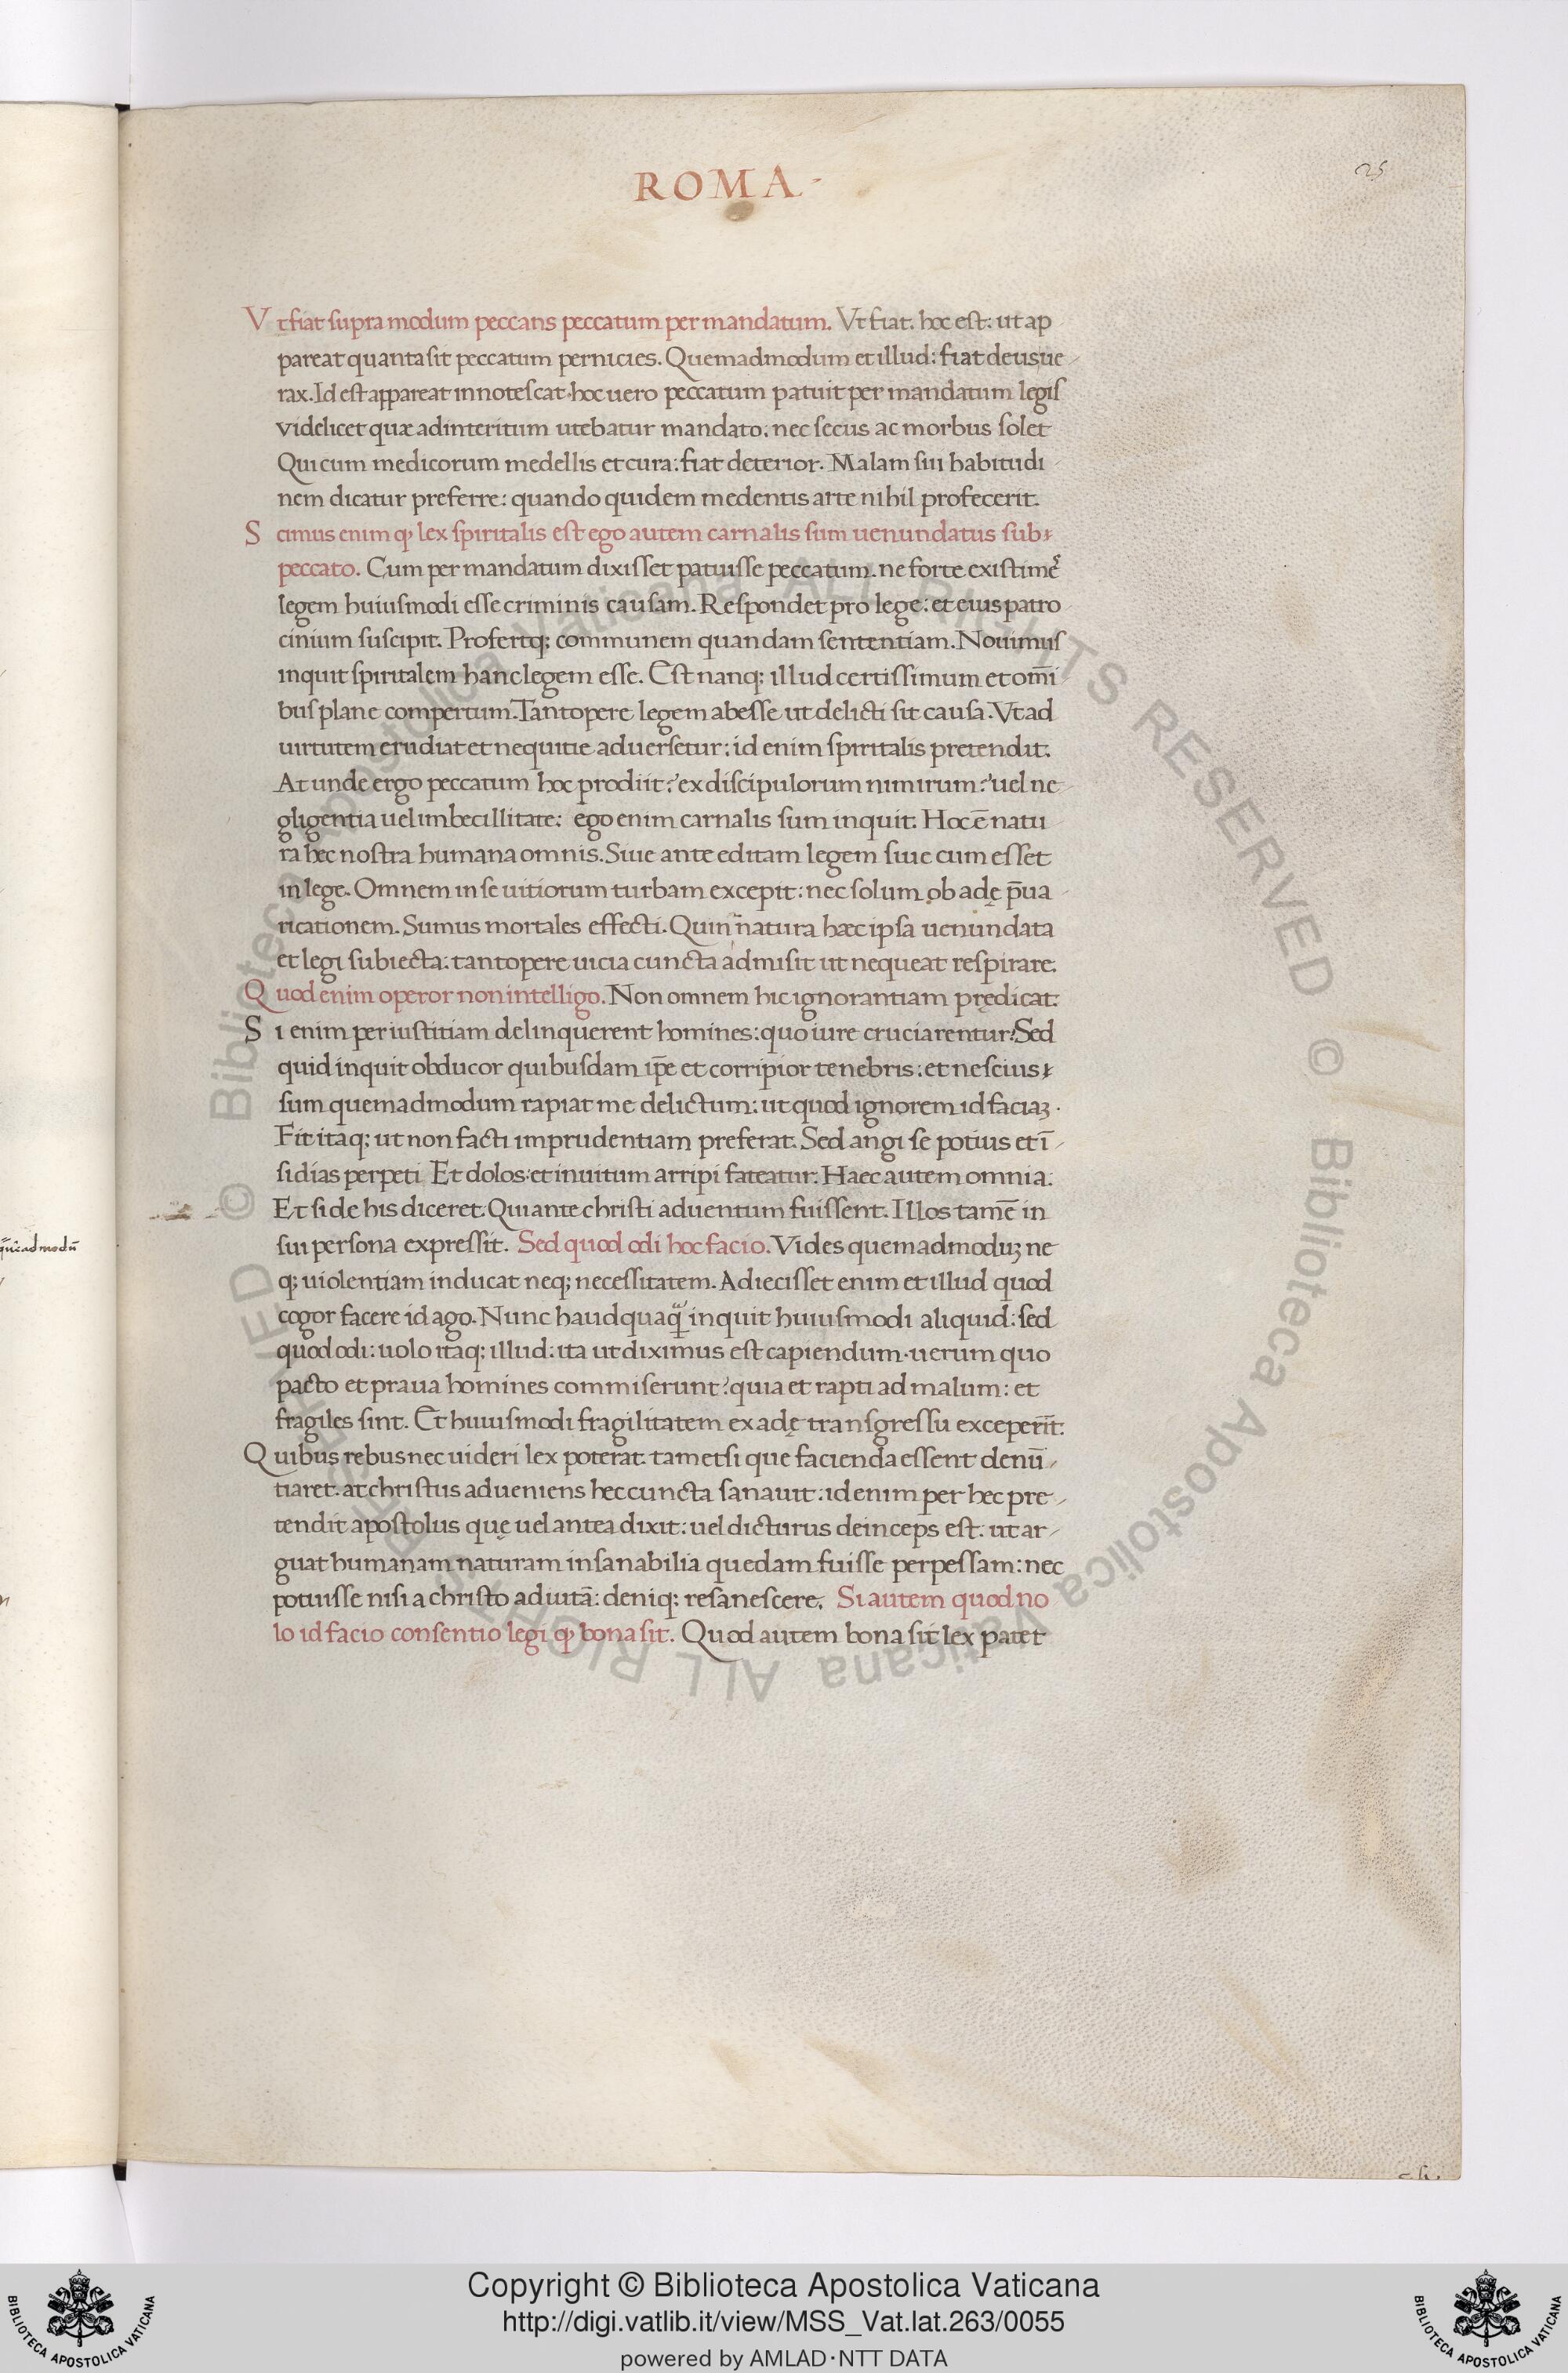 ROMA
25
Vt fiat supra modum peccans peccatum per mandatum. Vt fiat. hoc est: ut ap
pareat quanta sit peccatum pernicies. Quemadmodum et illud: fiat deus ue
rax. Id est appareat innotescat. hoc uero peccatum patuit per mandatum legis
videlicet quæ ad interitum utebatur mandato. nec secus ac morbus solet
Qui cum medicorum medellis et cura: fiat deterior. Malam sui habitudi
nem dicatur preferre: quando quidem medentis arte nihil profecerit.
Scimus enim ꝙ lex spiritalis est ego autem carnalis sum uenundatus sub
peccato. Cum per mandatum dixisset patuisse peccatum. ne forte existime᷒
legem huiusmodi esse criminis causam. Respondet pro lege: et eius patro
cinium suscipit. Profertq; communem quandam sententiam. Nouimus
inquit spiritalem hanc legem esse. Est nanq: illud certissimum et om̄i
bus plane compertum. Tantopere legem abesse ut delicti sit causa. Vt ad
uirtutem erudiat et nequitie aduersetur: id enim spiritalis pretendit.
At unde ergo peccatum hoc prodiit? ex discipulorum nimirum? uel ne
gligentia uel imbecillitate: ego enim carnalis sum inquit. Hoc ē natu
ra hec nostra humana omnis. Siue ante editam legem siue cum esset
in lege. Omnem in se uitiorum turbam excepit: nec solum ob adę p̄ua
ricationem. Sumus mortales effecti. Quin natura hæc ipsa uenundata
et legi subiecta: tantopere uicia cuncta admisit ut nequeat respirare.
Quod enim operor non intelligo. Non omnem hic ignorantiam prędicat:
Si enim per iustitiam delinquerent homines: quo iure cruciarentur? Sed
quid inquit obducor quibusdam ip̄e et corripior tenebris: et nescius
sum quemadmodum rapiat me delictum: ut quod ignorem id faciaꝫ.
Fit itaq; ut non facti imprudentiam preferat. Sed angi se potius et ī
sidias perpeti Et dolos: et inuitum arripi fateatur. Haec autem omnia:
Et si de his diceret. Qui ante christi aduentum fuissent. Illos tamē in
sui persona expressit. Sed quod odi hoc facio. Vides quemadmoduꝫ ne
q; uiolentiam inducat neq; necessitatem. Adiecisset enim et illud quod
cogor facere id ago. Nunc haudquaq̄ inquit huiusmodi aliquid: sed
quod odi: uolo itaq: illud: ita ut diximus est capiendum. uerum quo
pacto et praua homines commiserunt? quia et rapti ad malum: et
fragiles sint. Et huiusmodi fragilitatem ex adę transgressu exceper̄it:
Quibus rebus nec uideri lex poterat. tametsi que facienda essent denū
tiaret. at christus adueniens hec cuncta sanauit: id enim per hec pre
tendit apostolus quę uel antea dixit: uel dicturus deinceps est. ut ar
guat humanam naturam insanabilia quedam fuisse perpessam: nec
potuisse nisi a christo adiutā: deniq: resanescere. Si autem quod no
lo id facio consentio legi ꝙ bona sit. Quod autem bona sit lex patet
Copyright © Biblioteca Apostolica Vaticana
http://digi.vatlib.it/view/MSS_Vat.lat.263/0055
powered by AMLAD·NTT DATA
BIBLIOTECA APOSTOLICA VATICANA
BIBLIOTECA APOSTOLICA VATICANA
© Biblioteca Apostolica Vaticana ALL RIGHTS RESERVED © Biblioteca Apostolica Vaticana ALL RIGHTS RESERVED